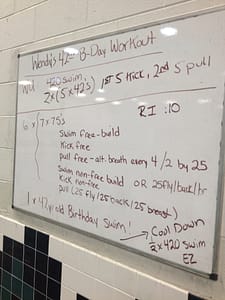 Wendy's 42nd B-Day Workout
WU 420 swim
2x(5x42's) 1st 5 Kick, 2nd 5 pull
RI :10
6 x (7x75's
Swim free-build
Kick free
pull free-alt. breath every 4/2 by 25
Swim non-free build OR 25fly/back/br
Kick non-free
pull (25 fly/25 back/25 breast)
1 x 42 yr old Birthday Swim!
→ Cool Down
2 x 420 swim
EZ